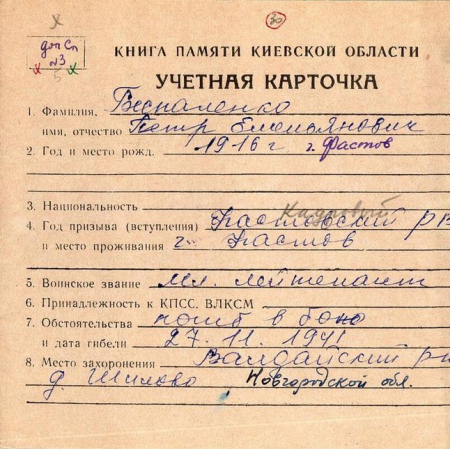 х
30
доп Сп
№3
х 5 х
КНИГА ПАМЯТИ КИЕВСКОЙ ОБЛАСТИ
УЧЕТНАЯ КАРТОЧКА
1. Фамилия, Беспаленко
имя, отчество Петр Емельянович
2. Год и место рожд. 1916 г г. Фастов
3. Национальность
Кадровый
4. Год призыва (вступления) Фастовский РВ
и место проживания г. Фастов
5. Воинское звание мл. лейтенант
6. Принадлежность к КПСС, ВЛКСМ
7. Обстоятельства погиб в бою
и дата гибели 27.11.1941
8. Место захоронения Валдайский р-н
д. Шилово Новгородской обл.